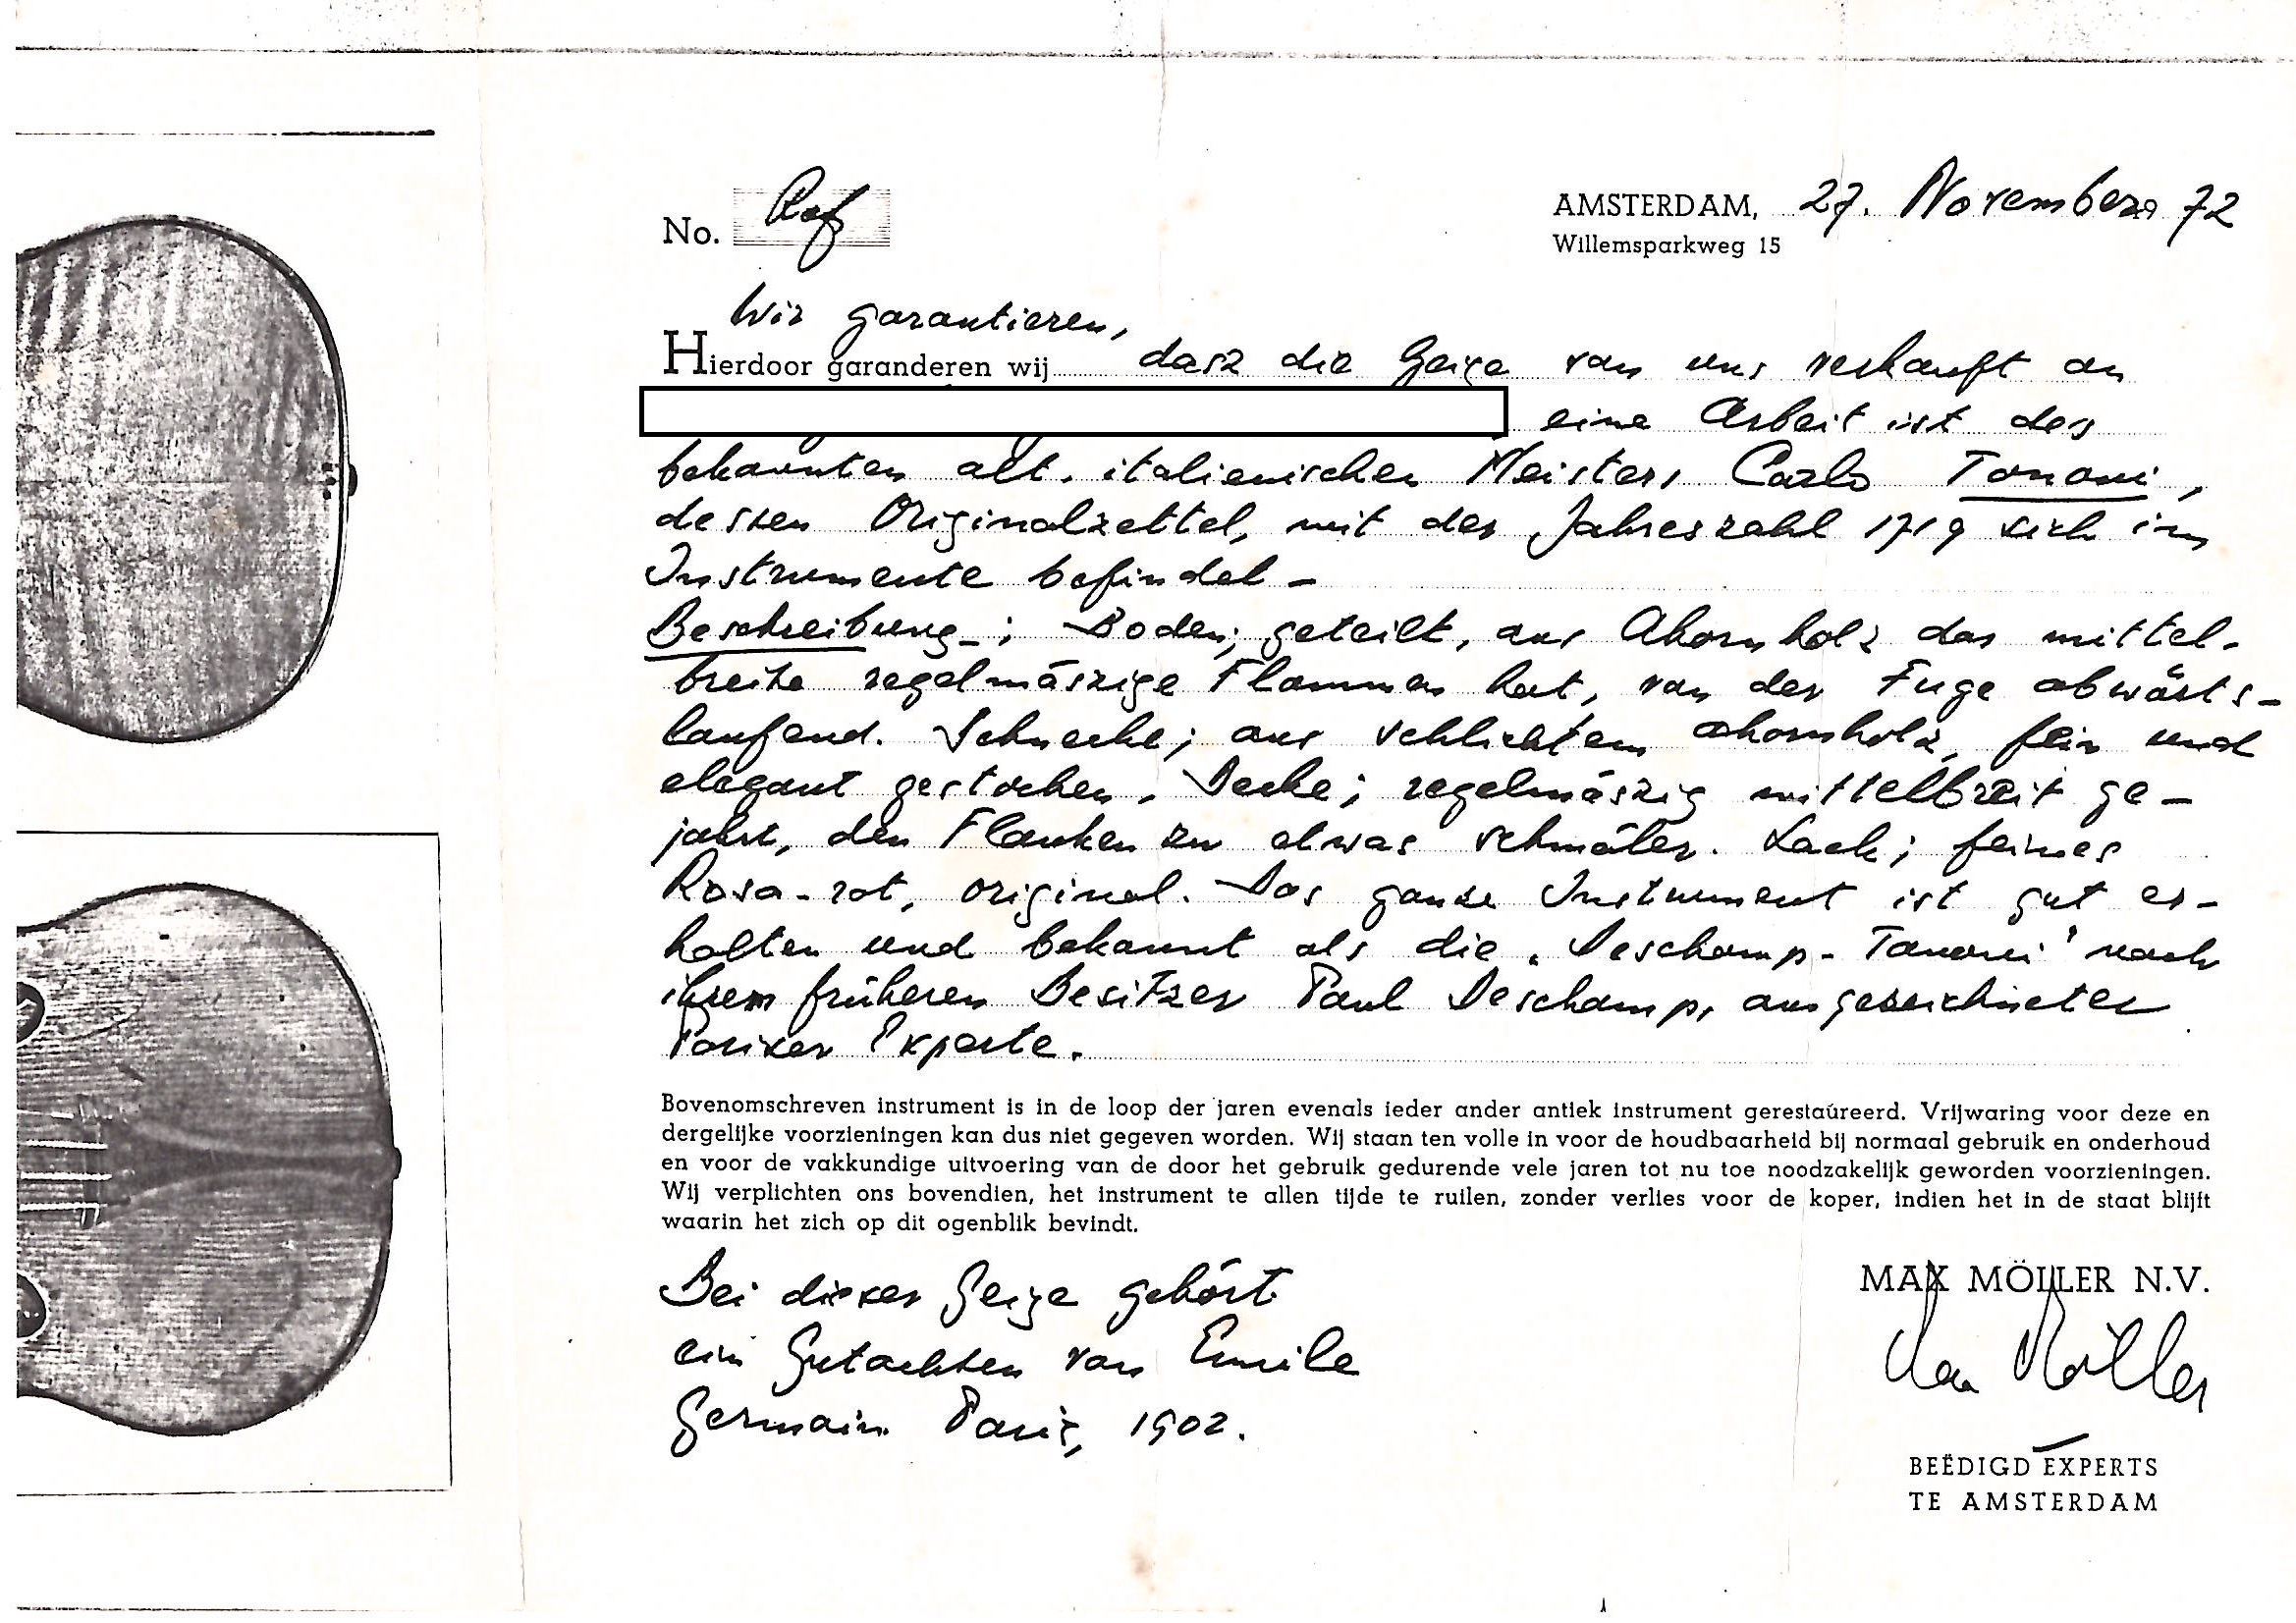 No. Ref
AMSTERDAM, 27. November 72
Willemsparkweg 15
Wir garantieren,
Hierdoor garanderen wij dasz die Geige von uns verkauft an
eine Arbeit ist des
bekannten alt. italienischen Meisters Carlo Tononi,
dessen Originalzettel, mit der Jahreszahl 1719 sich im
Instrumente befindet -
Beschreibung-; Boden; geteilt, aus Ahornholz das mittel-
breite regelmäszige Flammen hat, von der Fuge abwärts-
laufend. Schnecke; aus schlichtem ahornholz, fein und
elegant gestochen. Decke; regelmäszig mittelbreit ge-
jahrt, den Flanken zu etwas schmäler. Lack; feines
Rosa-rot, original. Das ganze Instrument ist gut er-
halten und bekannt als die "Deschamp-Tononi" nach
ihrem früheren Besitzer Paul Deschamp, ausgezeichneter
Pariser Experte.
Bovenomschreven instrument is in de loop der jaren evenals ieder ander antiek instrument gerestaureerd. Vrijwaring voor deze en
dergelijke voorzieningen kan dus niet gegeven worden. Wij staan ten volle in voor de houdbaarheid bij normaal gebruik en onderhoud
en voor de vakkundige uitvoering van de door het gebruik gedurende vele jaren tot nu toe noodzakelijk geworden voorzieningen.
Wij verplichten ons bovendien, het instrument te allen tijde te ruilen, zonder verlies voor de koper, indien het in de staat blijft
waarin het zich op dit ogenblik bevindt.
Bei dieser Geige gehört
ein Gutachten von Emile
Germain Paris, 1902.
MAX MÖLLER N.V.
Max Möller
BEËDIGD EXPERTS
TE AMSTERDAM